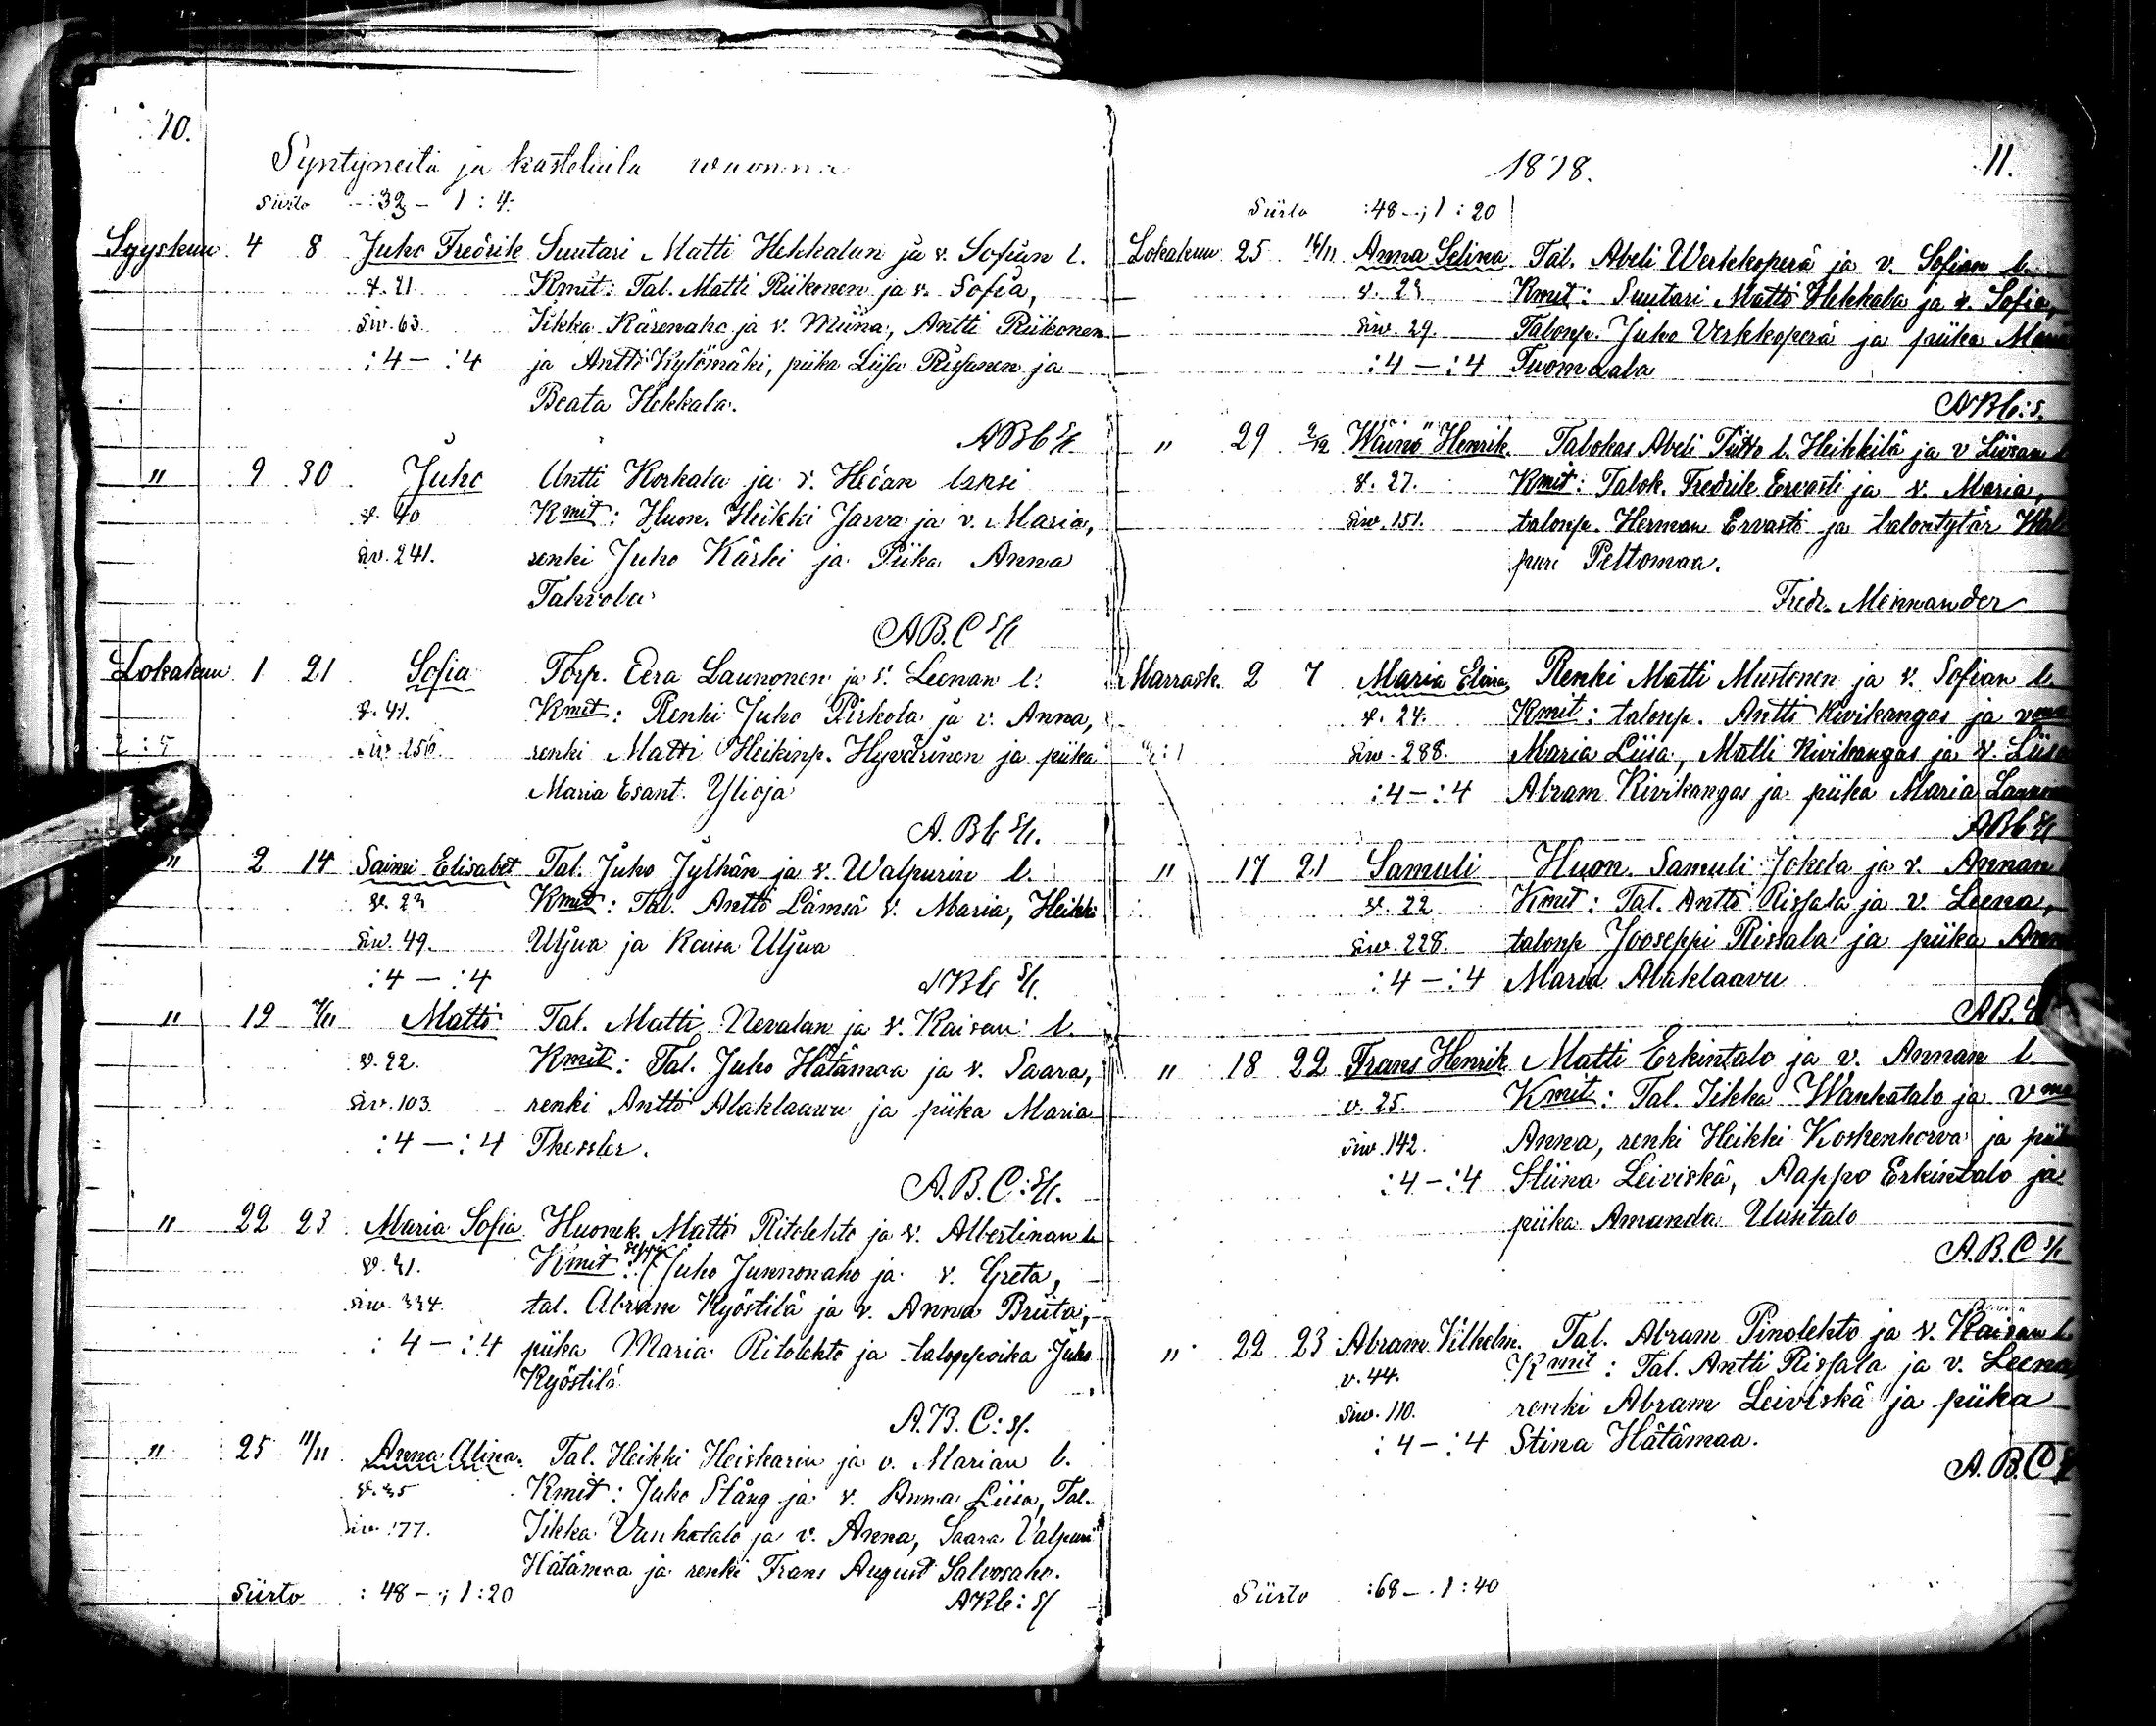 10.
Syntyneitä ja kastetuita wuonna
Siirto :32 – 1:4
Syyskuu 4 8 Juho Fredrik Suutari Matti Hekkalan ja v. Sofian l.
v. 21 Kmit: Tal. Matti Riikonen ja v. Sofia,
Siv. 63. Iikka Käsenaho ja v. Miina, Antti Riikonen
:4 – :4 ja Antti Kylömäki, piika Liisa Rissanen ja
Beata Hekkala.
ABC
" 9 30 Juho Antti Korkala ja v. Hedan lapsi
v. 40 Kmit: Huon. Heikki Jarva ja v. Maria,
siv. 241. renki Juho Kärki ja Piika Anna
Tahvola
A B. C
Lokakuu 1 21 Sofia Torp. Eera Launonen ja v. Leenan l.
v. 41. Kmit: Renki Juho Pirkola ja v. Anna,
2:5 siv. 256. renki Matti Heikinp. Hyvärinen ja piika
Maria Esant. Ylioja
A. B C
" 2 14 Saimi Elisabet Tal. Juho Jylhän ja v. Walpurin l.
v. 23 Kmit: Tal. Antti Lämsä v. Maria, Heikki
Siv. 49. Uljua ja Kaisa Uljua
:4 – :4
ABC
" 19 Matti Tal. Matti Nevalan ja v. Kaisan l.
v. 22. Kmit: Tal. Juho Hätämaa ja v. Saara,
Siv. 103. renki Antti Alaklaavu ja piika Maria
:4 – :4 Thessler.
A. B. C:
" 22 23 Maria Sofia Huonek. Matti Ritolehto ja v. Albertinan l.
v. 31. Kmit: seppä Juho Junnonaho ja v. Greta,
siv. 334. tal. Abram Kyöstilä ja v. Anna Briita,
:4 – :4 piika Maria Ritolehto ja talonpoika Juho
Kyöstilä
A. B. C:
" 25 11/11 Anna Alina. Tal. Heikki Heiskarin ja v. Marian l.
v. 35 Kmit: Juho Stång ja v. Anna Liisa, Tal.
Siv. 177. Iikka Vanhatalo ja v. Anna, Saara Valpuri
Hätämaa ja renki Frans August Salvosaho.
Siirto :48 –; 1:20 ABC:
11.
1878.
Siirto :48 –; 1:20
Lokakuu 25 Anna Selina Tal. Abeli Werkkoperä ja v. Sofian l.
v. 23 Kmit: Suutari Matti Hekkala ja v. Sofia,
Siv. 29. Talonp. Juho Verkkoperä ja piika
:4 – :4 Tuomaala
ABC:
" 29 2/12 Wäinö Henrik. Talokas Abeli l. Heikkilä ja v Liisan
v. 27. Kmit: Talok. Fredrik Ervasti ja v. Maria,
Siv. 151. talonp. Herman Ervasti ja talontytär Wal
puri Peltomaa.
Fredr. Mennander
Marrask. 2 7 Maria Elina Renki Matti Mustonen ja v. Sofian l.
v. 24. Kmit: talonp. Antti Kivikangas ja
Siv. 288. Maria Liisa, Matti Kivikangas ja v. Liisa
:4 – :4 Abram Kivikangas ja piika Maria
ABC
" 17 21 Samuli Huon. Samuli Jokela ja v. Annan
v. 22 Kmit: Tal. Antti Rissala ja v. Leena,
Siv. 228. talonp Jooseppi Rissala ja piika
:4 – :4 Maria Alaklaavu
AB.
" 18 22 Frans Henrik Matti Erkintalo ja v. Annan l.
v. 25. Kmit: Tal. Iikka Wanhatalo ja
Siv. 142. Anna, renki Heikki Koskenkorva ja
:4 – :4 Stiina Leiviskä, Aappo Erkintalo ja
piika Amanda Uusitalo
A. B. C
" 22 23 Abram Vilhelm. Tal. Abram Pinolehto ja v. Kaisan l.
v. 44. Kmit: Tal. Antti Rissala ja v. Leena,
Siv. 110. renki Abram Leiviskä ja piika
:4 – :4 Stina Hätämaa.
A. B. C
Siirto :68 – 1:40